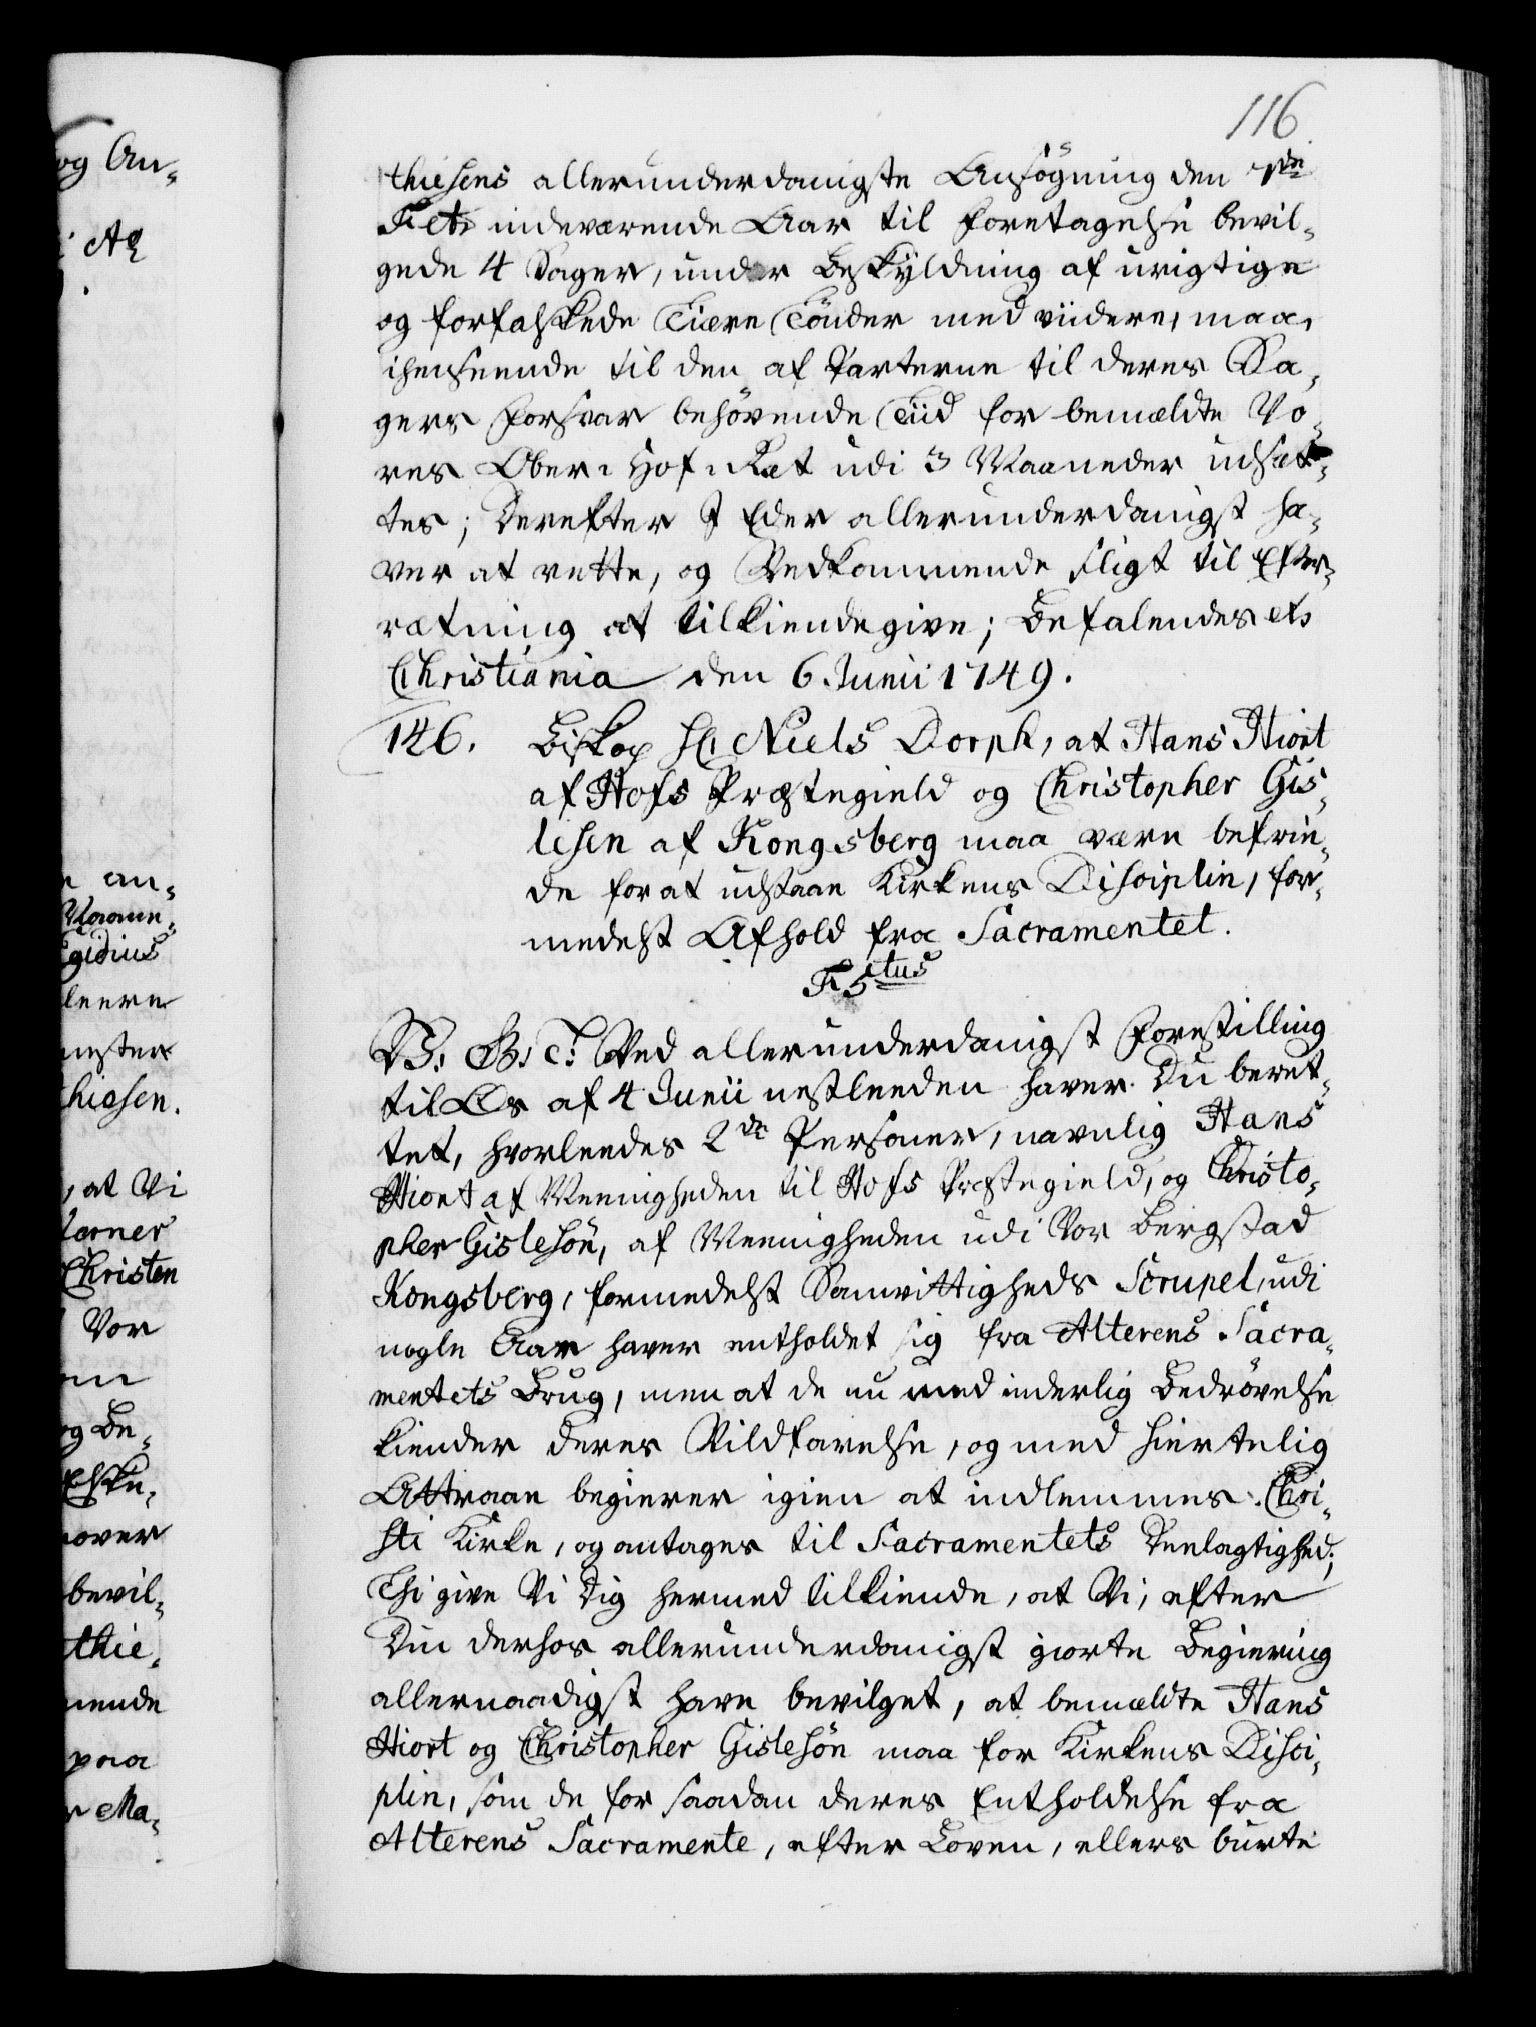 116
og An-
: Ag
n an-
Maane-
gidius
leere
mester
thiesen.
, at Vi
Verner
Christen
Vor
og Be-
bevil-
thie-
nende
paa
r Ma-
thiesens allerunderdanigste Ansøgning den 7de
Febr indeværende Aar til Foretagelse bevil-
gede 4 Sager, under Beskyldning af urigtige
og forfalskede Tiære Tönder med viidere, maa,
ihenseende til den af Parterne til deres Sa-
gers Forsvar behövende Tiid for bemældte Vo-
res Ober-Hof-Ræt udi 3 Maaneder udsæt-
tes; Derefter I Eder allerunderdanigst ha-
ver at rette, og Vedkommende sligt til Efter-
rætning at tilkiendegive; Befalendes etc
Christiania den 6. Junii 1749.
126. Biskop Hr. Niels Dorph, at Hans Hiort
af Hofs Præstegield og Christopher Gis-
lesen af Kongsberg maa være befrie-
de for at udstaae Kirkens Disciplin, for-
medelst Afhold fra Sacramentet.
F 5tus
V. G. T. Ved allerunderdanigst Forestilling
til Os af 4 Junii nestleeden haver Du beret-
tet, hvorleedes 2de Personer, navnlig Hans
Hiort af Meenigheden til Hofs Præstegield, og Christo-
pher Gislesön, af Meenigheden udi Vor Bergstad
Kongsberg, formedelst Samvittigheds Scrupel, udi
nogle Aar haver entholdet sig fra Alterens Sacra-
mentets Brug, men at de nu med inderlig Bedrövelse
kiender deres Vildfarelse, og med hiertelig
Attraae begierer igien at indlemmes Chri-
sti Kirke, og antages til Sacramentets Deelagtighed;
Thi give Vi Dig hermed tilkiende, at Vi, efter
Din derhos allerunderdanigst giorte Begiering
allernaadigst have bevilget, at bemældte Hans
Hiort og Christopher Gislesön maa for Kirkens Disci-
plin, som de for saadan deres Entholdelse fra
Alterens Sacramente, efter Loven, ellers burte